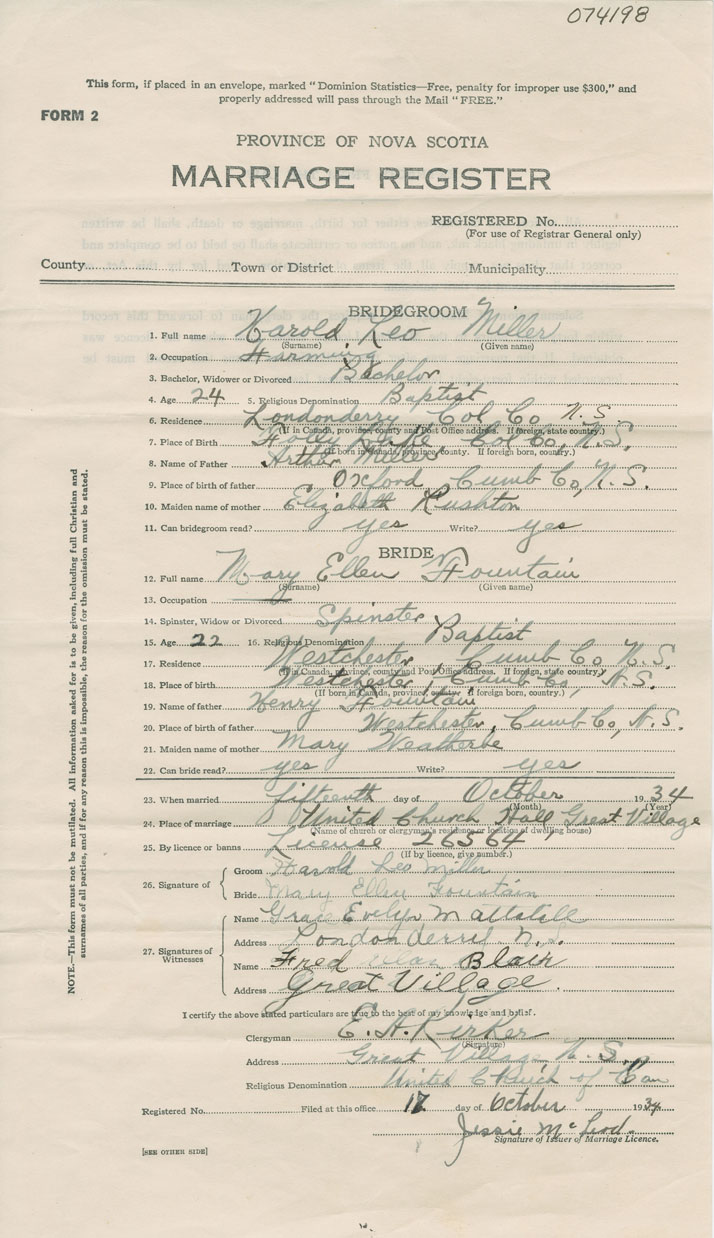 074198
This form, if placed in an envelope, marked "Dominion Statistics—Free, penalty for improper use $300," and
properly addressed will pass through the Mail "FREE."
FORM 2
PROVINCE OF NOVA SCOTIA
MARRIAGE REGISTER
REGISTERED No.
(For use of Registrar General only)
County Town or District Municipality
BRIDEGROOM
1. Full name Harold Leo Miller
(Surname) (Given name)
2. Occupation Farming
3. Bachelor, Widower or Divorced Bachelor
4. Age 24 5. Religious Denomination Baptist
6. Residence Londonderry Col Co N.S.
(If in Canada, province, county and Post Office address. If foreign, state country.)
7. Place of Birth Folly Lake, Col Co, N.S.
(If born in Canada, province, county. If foreign born, country.)
8. Name of Father Arthur Miller
9. Place of birth of father Oxford Cumb Co, N.S.
10. Maiden name of mother Elizabeth Rushton
11. Can bridegroom read? yes Write? yes
BRIDE
12. Full name Mary Ellen Fountain
(Surname) (Given name)
13. Occupation
14. Spinster, Widow or Divorced Spinster
15. Age 22 16. Religious Denomination Baptist
17. Residence Westchester, Cumb Co N.S.
(If in Canada, province, county and Post Office address. If foreign, state country.)
18. Place of birth Westchester, Cumb Co, N.S.
(If born in Canada, province, country. If foreign born, country.)
19. Name of father Henry Fountain
20. Place of birth of father Westchester, Cumb Co, N.S.
21. Maiden name of mother Mary Weatherbe
22. Can bride read? yes Write? yes
23. When married fifteenth day of October 1934
(Month) (Year)
24. Place of marriage United Church Hall, Great Village
(Name of church or clergyman's residence or location of dwelling house)
25. By licence or banns License 26564
(If by licence, give number.)
26. Signature of
Groom Harold Leo Miller
Bride Mary Ellen Fountain
27. Signatures of Witnesses
Name Grace Evelyn
Address Londonderril N.S.
Name Fred Blair
Address Great Village.
I certify the above stated particulars are true to the best of my knowledge and belief.
Clergyman E.A. Kirker
(Signature)
Address Great Village N.S.
Religious Denomination United Church of Can
Registered No. Filed at this office 17 day of October 1934
Jessie McLeod.
Signature of Issuer of Marriage Licence.
[SEE OTHER SIDE]
NOTE.—This form must not be mutilated. All information asked for is to be given, including full Christian and
surnames of all parties, and if for any reason this is impossible, the reason for the omission must be stated.